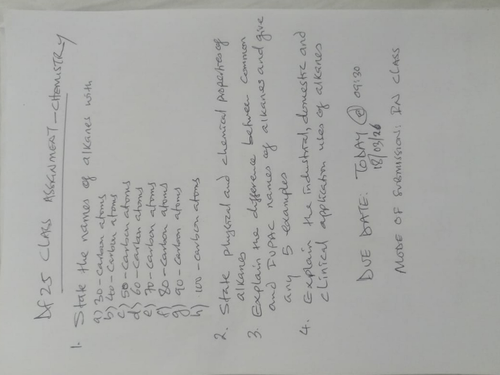 DF25 CLASS ASSIGNMENT - CHEMISTRY
1. State the names of alkanes with
a) 30-carbon atoms
b) 40-carbon atoms
c) 50-carbon atoms
d) 60-carbon atoms
e) 70-carbon atoms
f) 80-carbon atoms
g) 90-carbon atoms
h) 100-carbon atoms
2. State physical and chemical properties of
alkanes
3. Explain the difference between common
and IUPAC names of alkanes and give
any 5 examples
4. Explain the industrial, domestic and
clinical application uses of alkanes
DUE DATE: TODAY @ 09:30
18/03/26
MODE OF SUBMISSION: IN CLASS